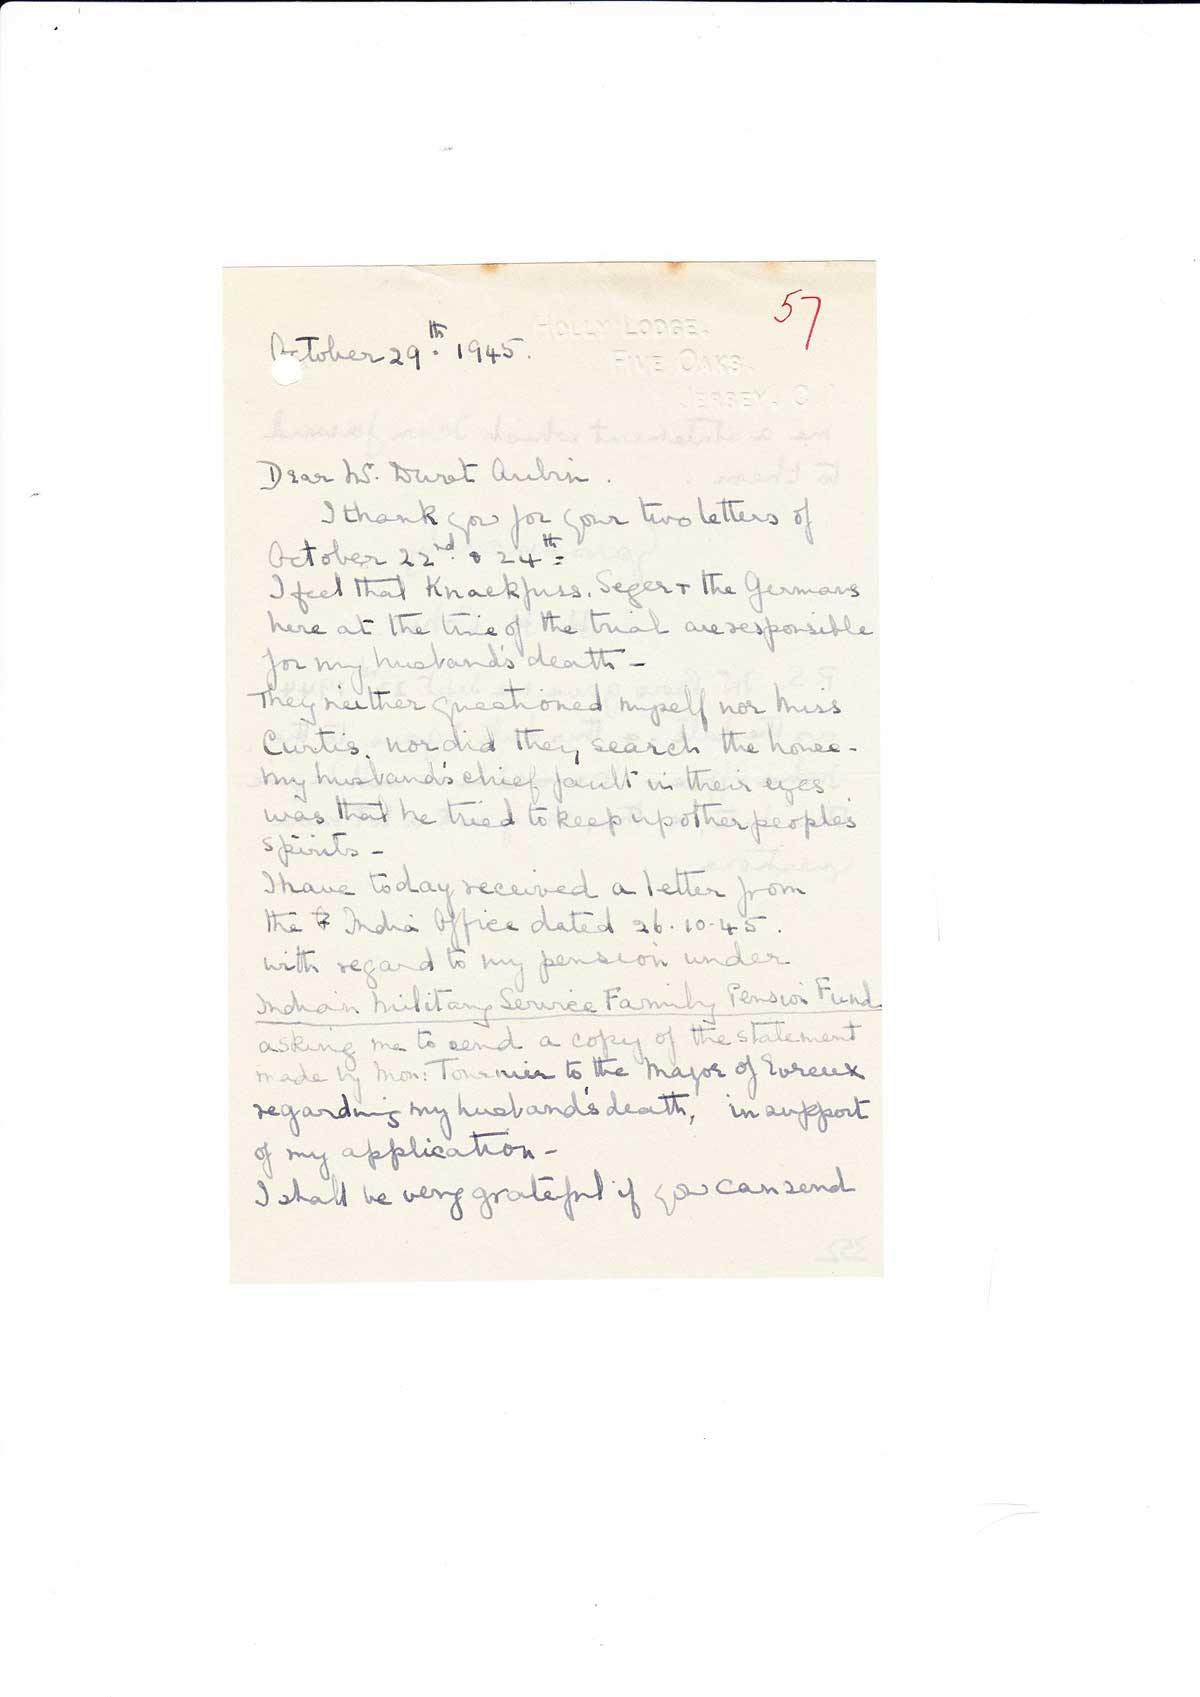 57
HOLLY LODGE.
FIVE OAKS.
JERSEY. C
October 29th. 1945.
Dear Mr. Duret Aubin.
I thank you for your two letters of
October 22nd. & 24th=
I feel that Knackfuss. Seger + the Germans
here at the time of the trial are responsible
for my husband's death –
They neither questioned myself nor Miss
Curtis. nor did they search the house –
my husband's chief fault in their eyes
was that he tried to keep up other people's
spirits –
I have today received a letter from
the India Office dated 26.10.45.
with regard to my pension under
Indian Military Service Family Pension Fund
asking me to send a copy of the statement
made by Mon: Tournier to the Mayor of Evreux
regarding my husband's death, in support
of my application –
I shall be very grateful if you can send